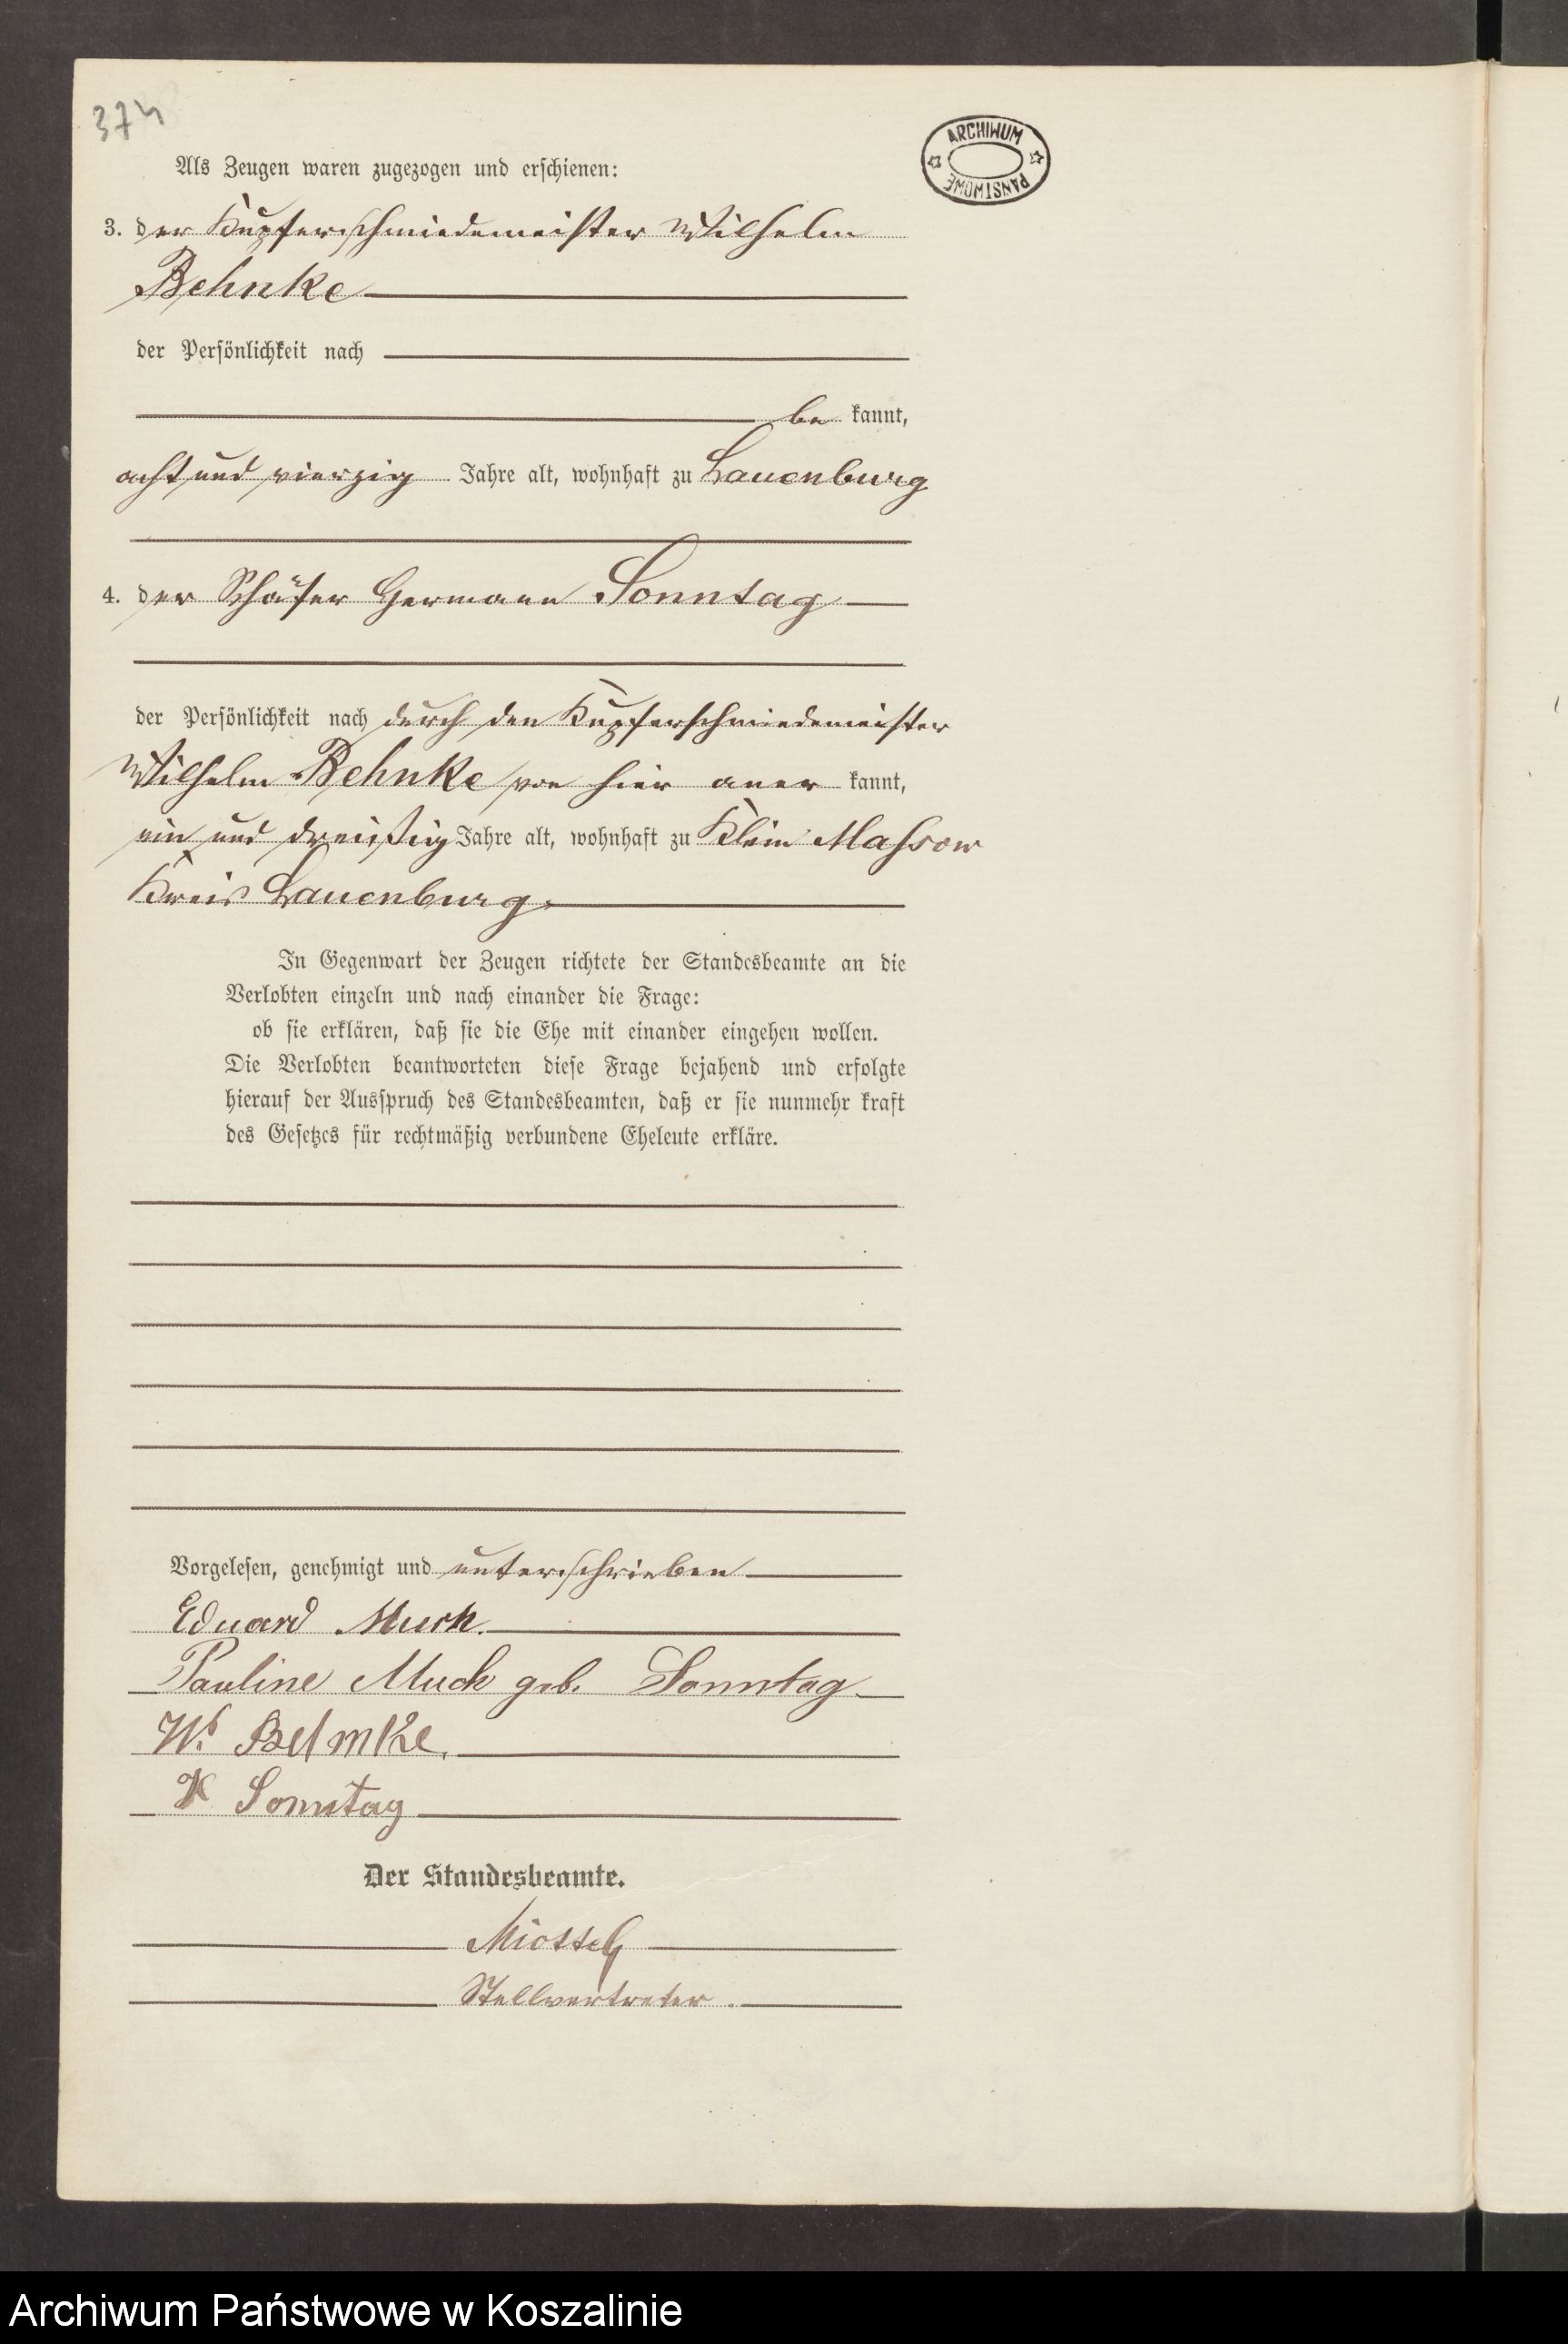 374
ARCHIWUM PAŃSTWOWE
Als Zeugen waren zugezogen und erschienen:
3. der Kupferschmiedemeister Wilhelm
Behnke
der Persönlichkeit nach
be kannt,
acht und vierzig Jahre alt, wohnhaft zu Lauenburg
4. der Schäfer Hermann Sonntag
der Persönlichkeit nach durch den Kupferschmiedemeister
Wilhelm Behnke von hier aner kannt,
ein und dreißig Jahre alt, wohnhaft zu Klein Massow
Kreis Lauenburg.
In Gegenwart der Zeugen richtete der Standesbeamte an die
Verlobten einzeln und nach einander die Frage:
ob sie erklären, daß sie die Ehe mit einander eingehen wollen.
Die Verlobten beantworteten diese Frage bejahend und erfolgte
hierauf der Ausspruch des Standesbeamten, daß er sie nunmehr kraft
des Gesetzes für rechtmäßig verbundene Eheleute erkläre.
Vorgelesen, genehmigt und unterschrieben
Eduard Much.
Pauline Much geb. Sonntag
W. Behnke.
Sonntag
Der Standesbeamte.
Stellvertreter.
Archiwum Państwowe w Koszalinie